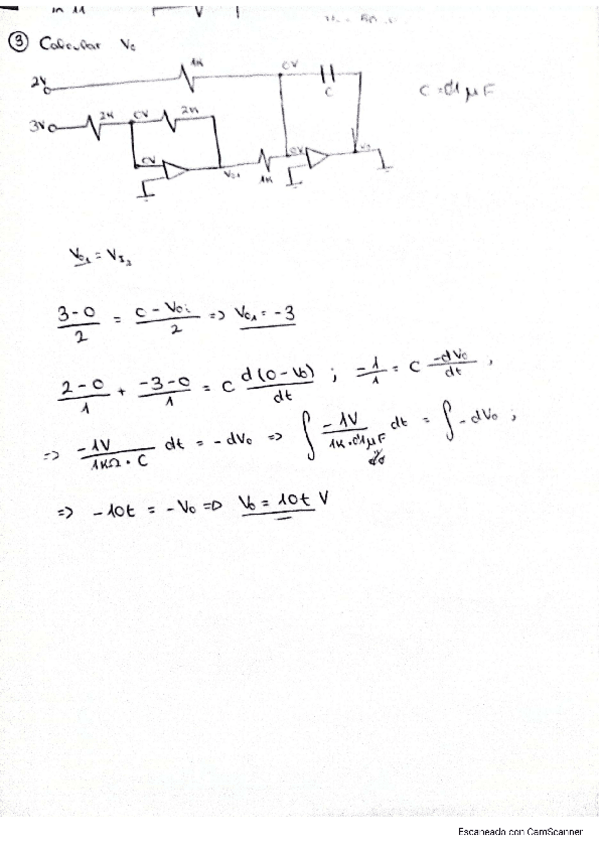 ③ Calcular Vo
2V 1K CV C C = 0'1 μF
3V 2K CV 2K
CV Vo1 1K CV Vo
Vo1 = VI2
3-0/2 = 0-Vo1/2 => Vo1 = -3
2-0/1 + -3-0/1 = C d(0-Vo)/dt ; -1/1 = C -dVo/dt ,
=> -1V/1KΩ·C dt = -dVo => ∫ -1V/1K·0'1μF dt = ∫ -dVo ;
=> -10t = -Vo => Vo = 10t V
Escaneado con CamScanner